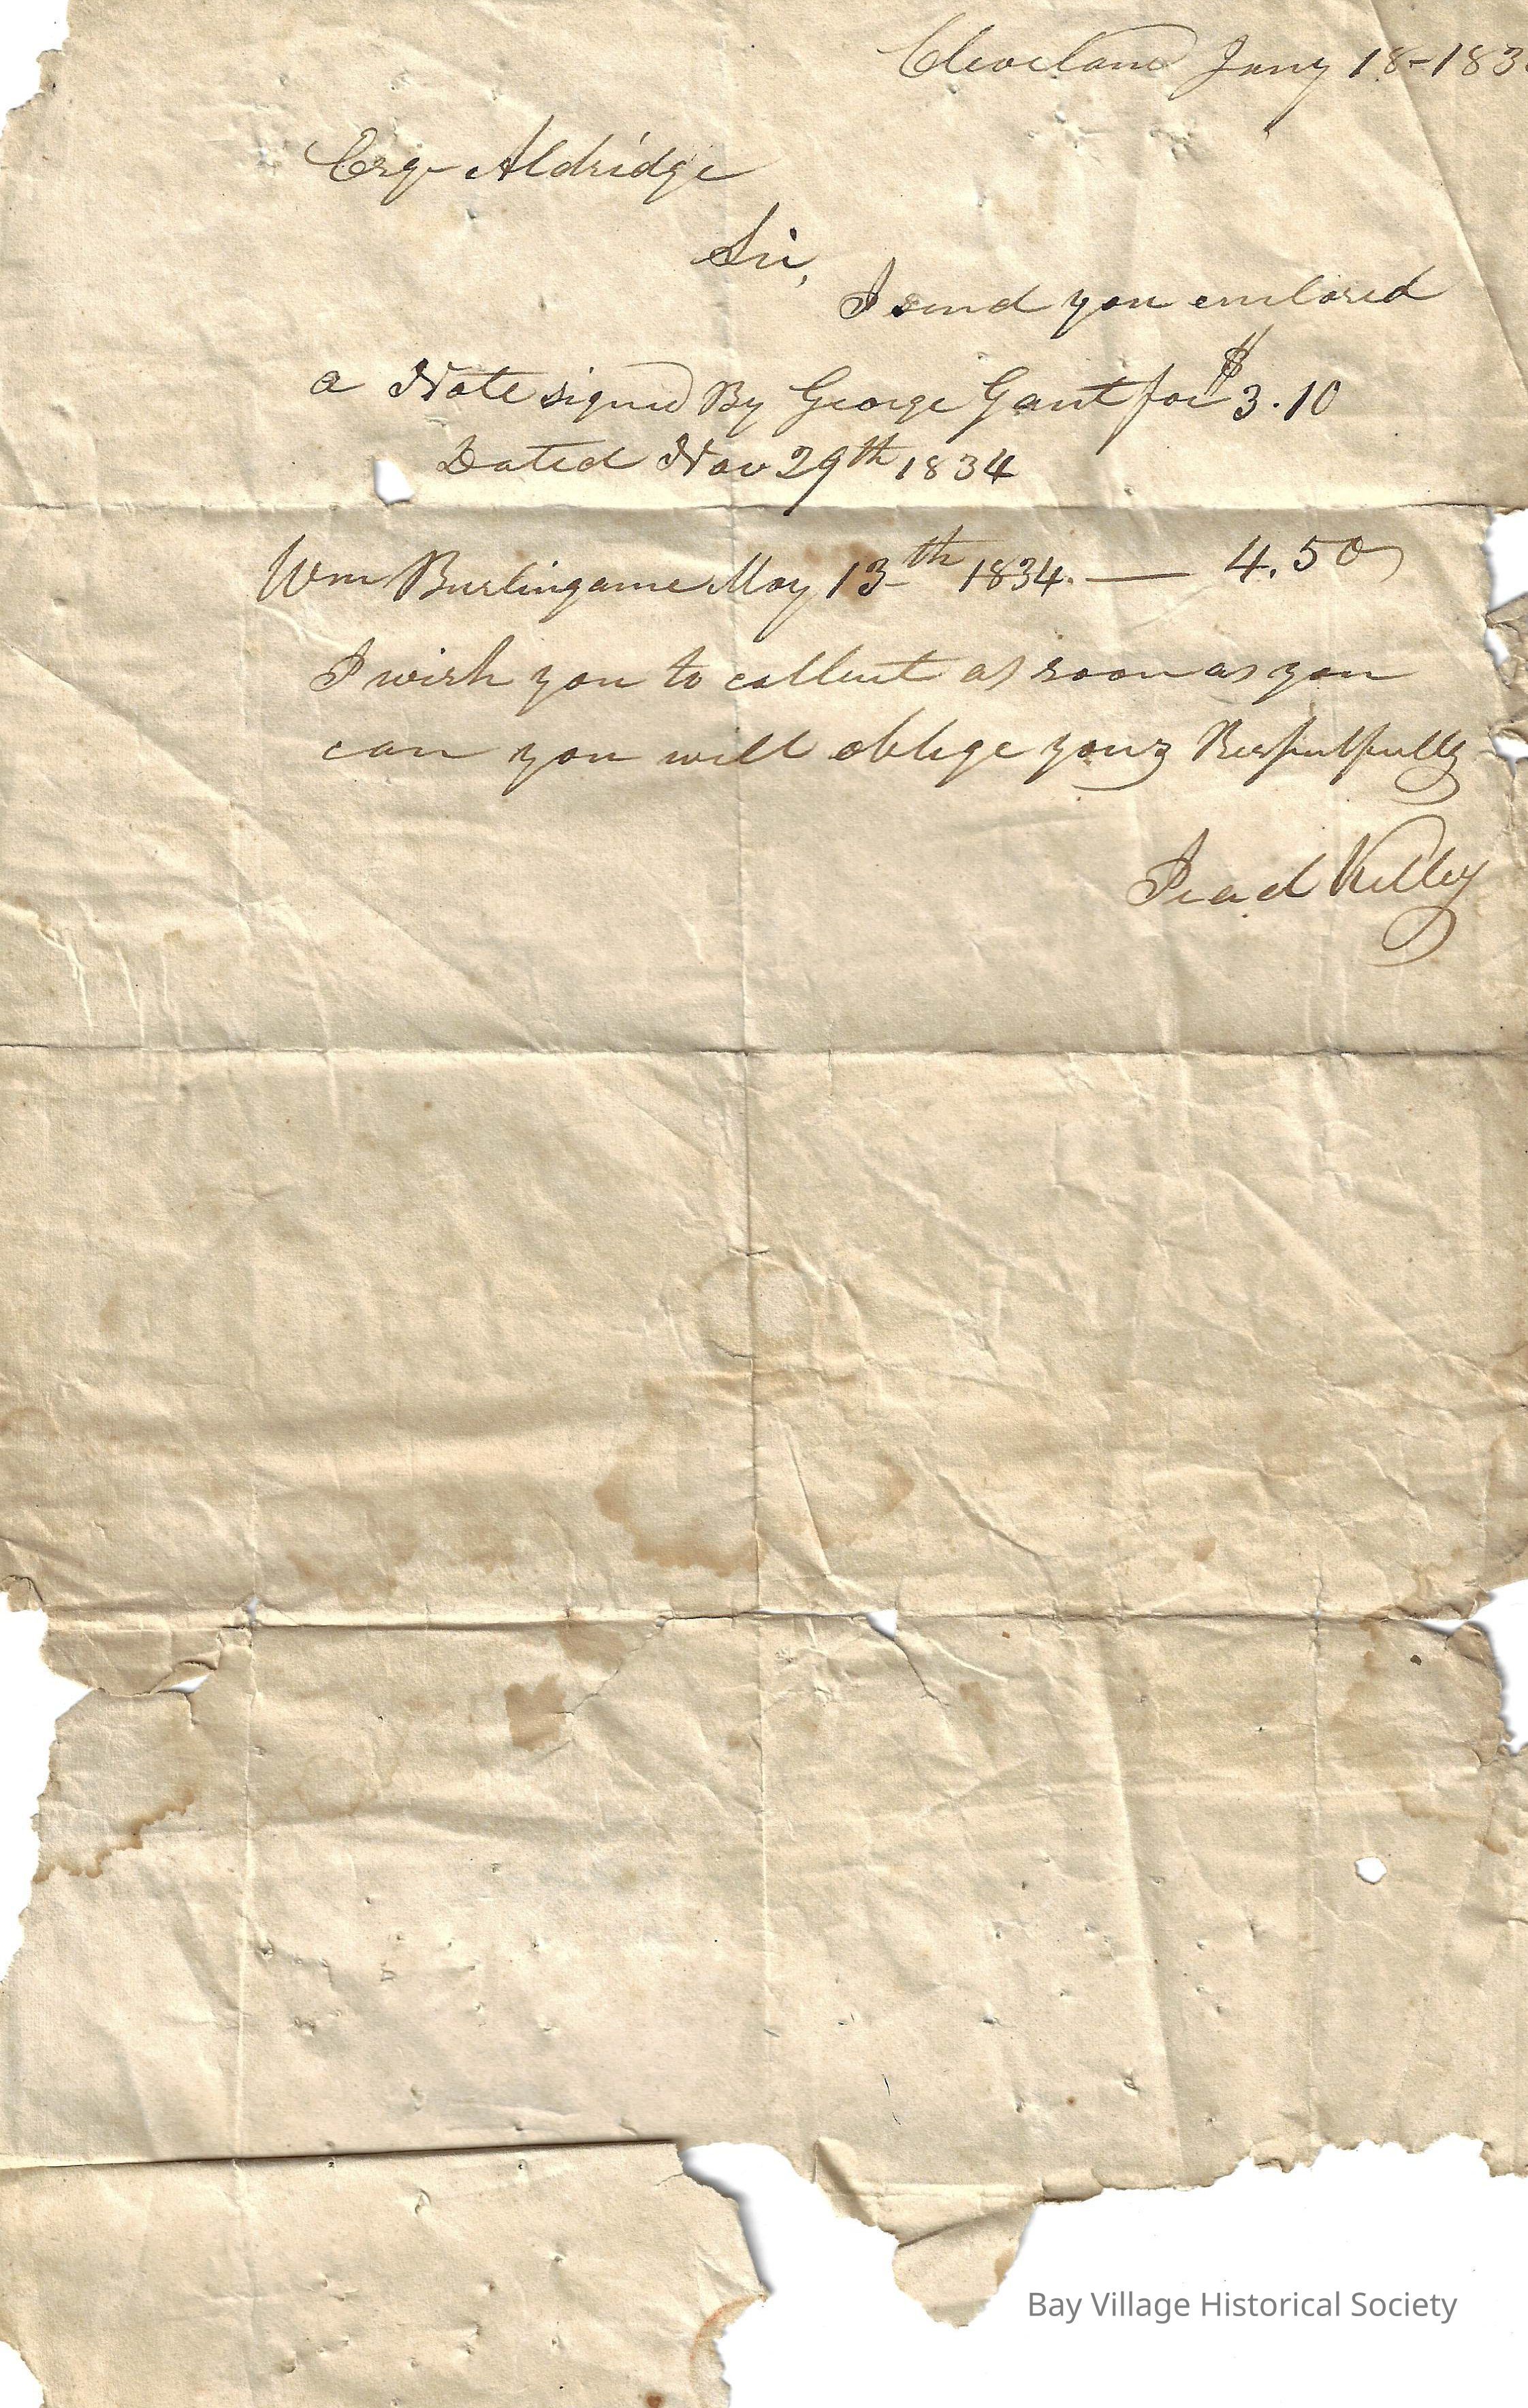 Cleveland Jany 18-183
Esqr Aldridge
Sir,
I send you enclosed
a Note signed By George Gant for $3.10
Dated Nov 29th 1834
Wm Burlingame May 13th 1834. — 4.50
I wish you to collect as soon as you
can you will oblige yours Respectfully
Irad Kelley
Bay Village Historical Society